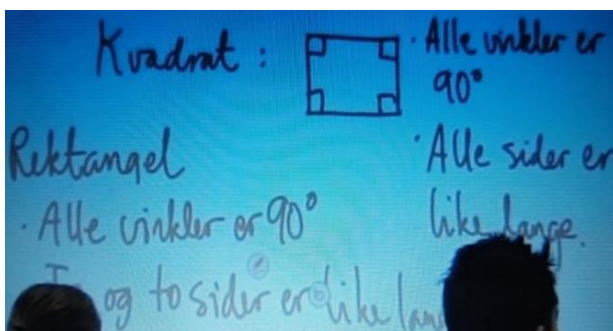 Kvadrat :
· Alle vinkler er
90°
· Alle sider er
like lange.
Rektangel
· Alle vinkler er 90°
og to sider er like